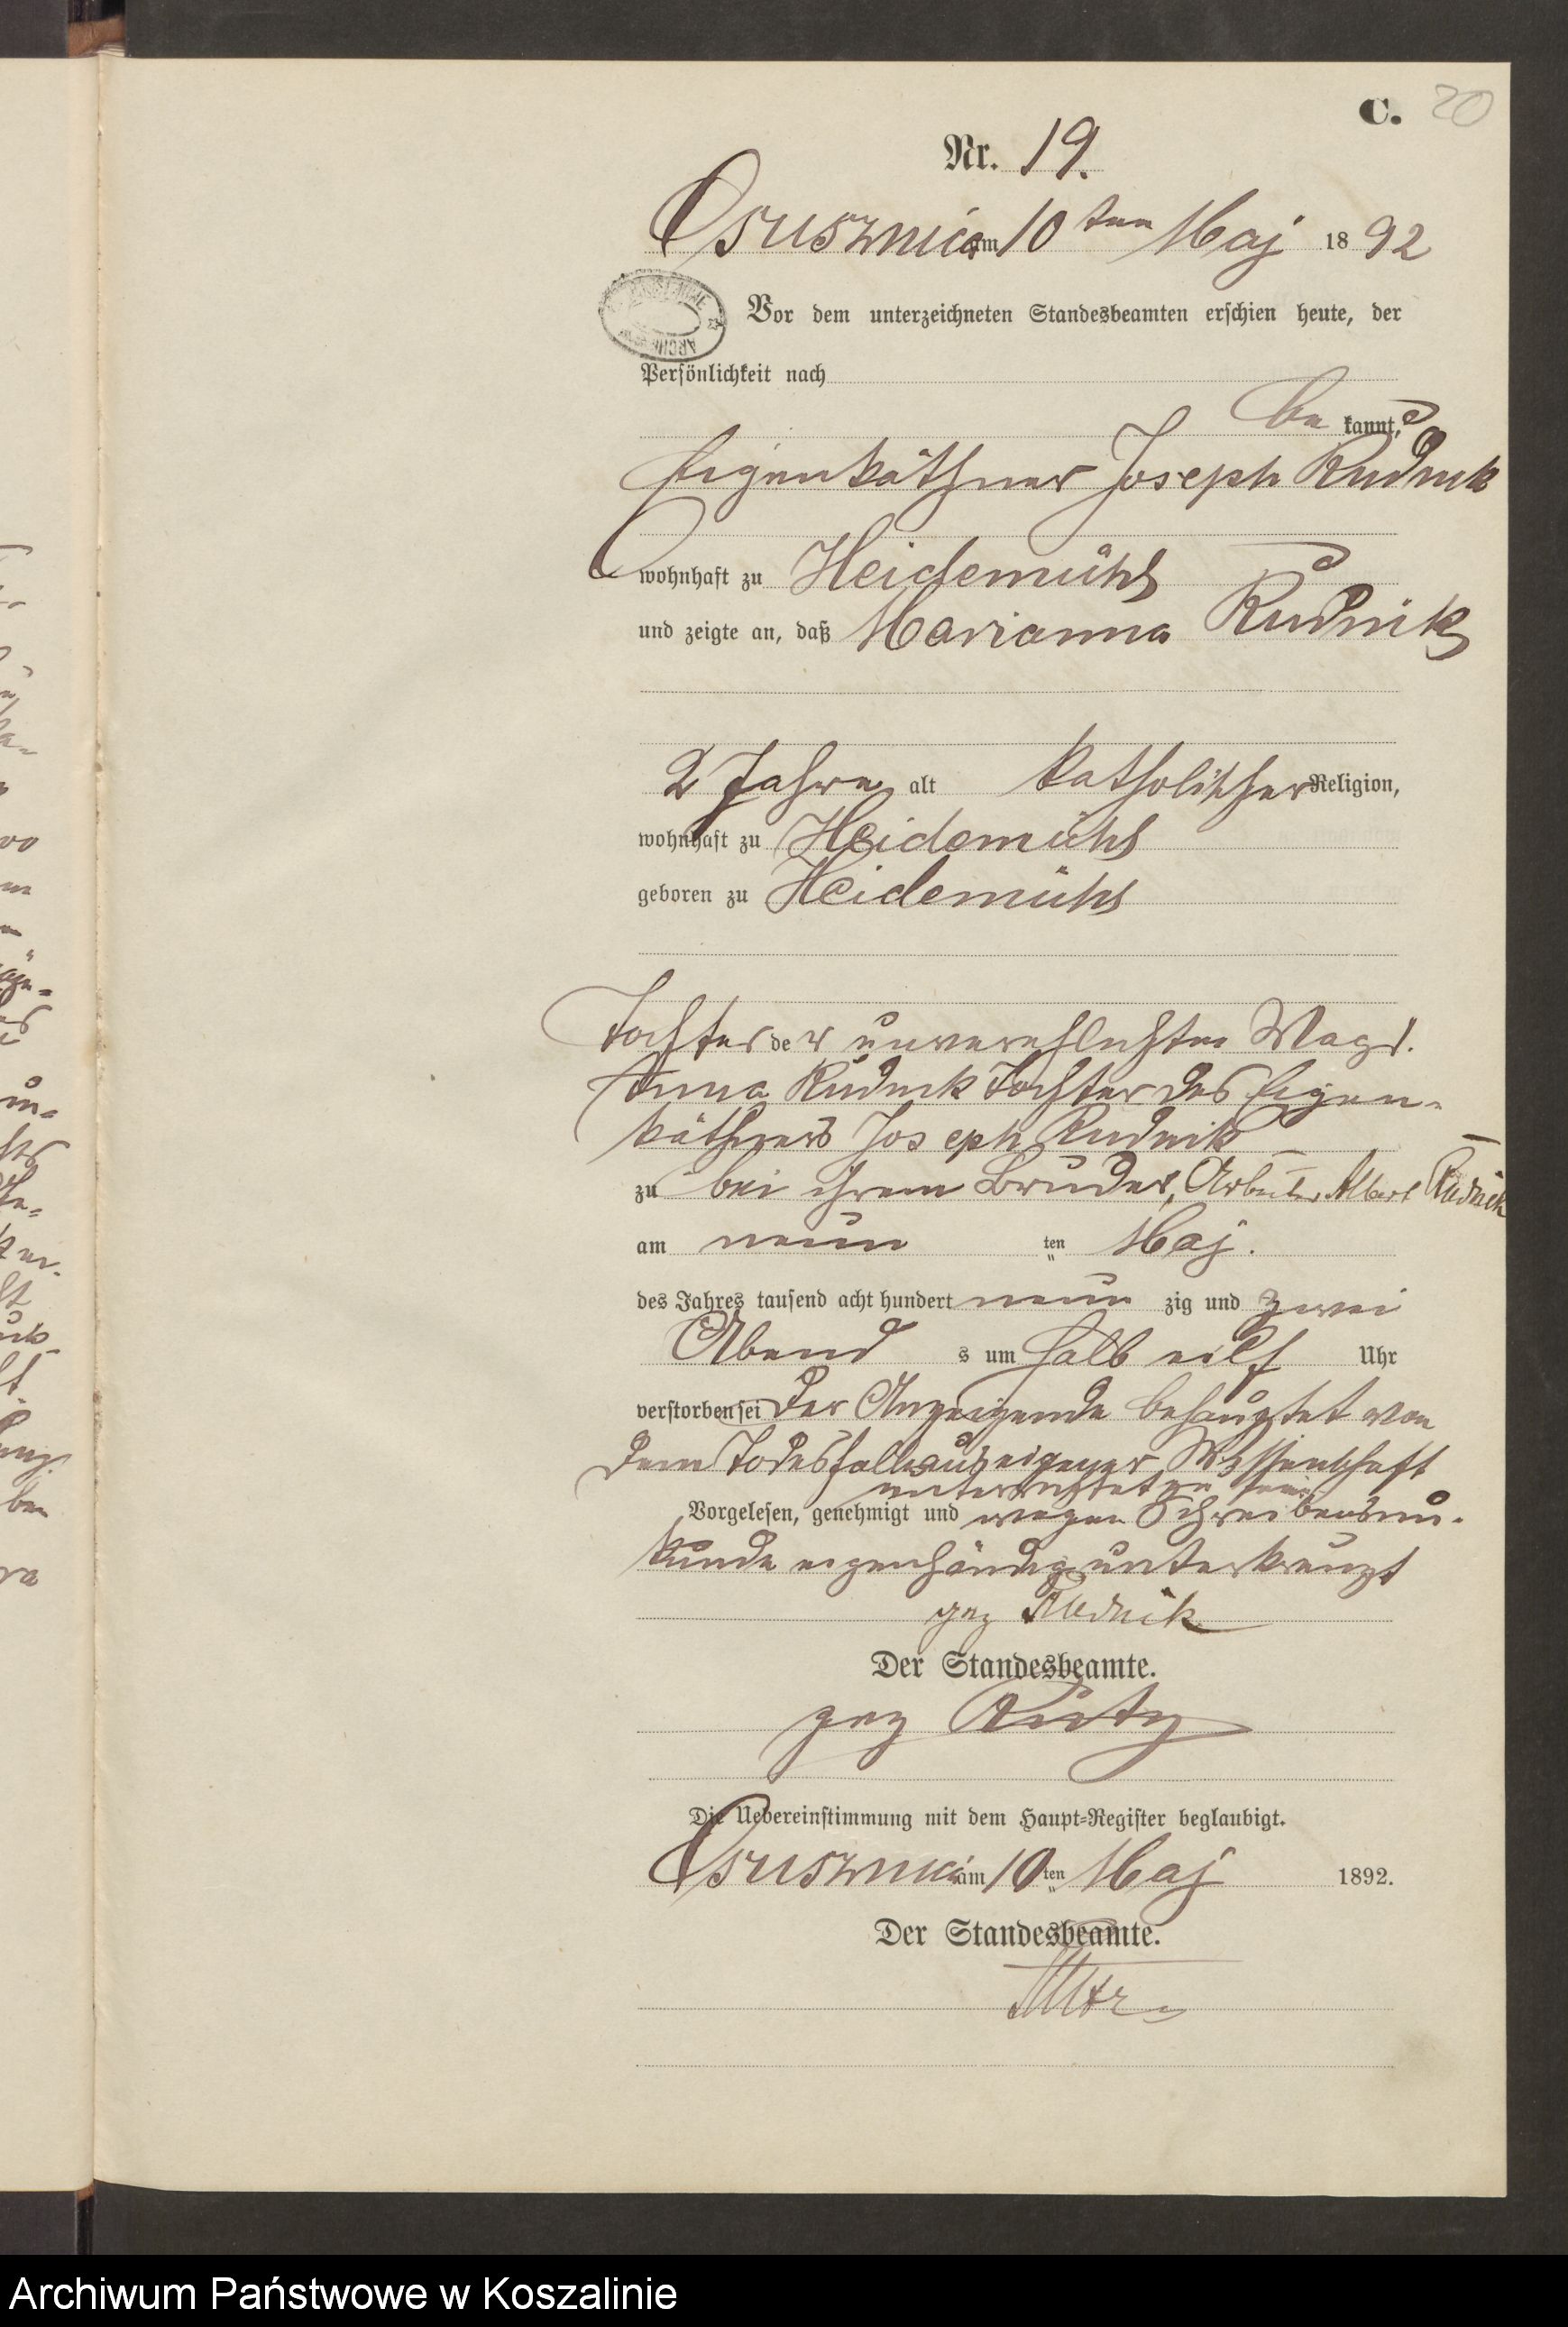 C. 20
Nr. 19.
Ossusznica am 10ten Maj 1892
Vor dem unterzeichneten Standesbeamten erschien heute, der
Persönlichkeit nach
be kannt,
Eigenkäthner Joseph Rudnik
wohnhaft zu Heidemühl
und zeigte an, daß Marianna Rudnik
2 Jahre alt katholischer Religion,
wohnhaft zu Heidemühl
geboren zu Heidemühl
Tochter der unverehlichten Magd.
Anna Rudnik Tochter des Eigen-
käthners Joseph Rudnik
zu bei ihrem Bruder, Arbeiter Albert Rudnik
am neun ten Maj.
des Jahres tausend acht hundert neun zig und zwei
Abend s um halb eilf Uhr
verstorben sei Der Anzeigende behauptet von
dem Todesfalle aus eigener Wissenschaft
unterrichtet zu sein
Vorgelesen, genehmigt und wegen Schreibensun-
kunde eigenhändig unterkreuzt
gez Rudnik
Der Standesbeamte.
gez
Die Uebereinstimmung mit dem Haupt-Register beglaubigt.
Ossusznica am 10ten Maj 1892.
Der Standesbeamte.
Archiwum Państwowe w Koszalinie